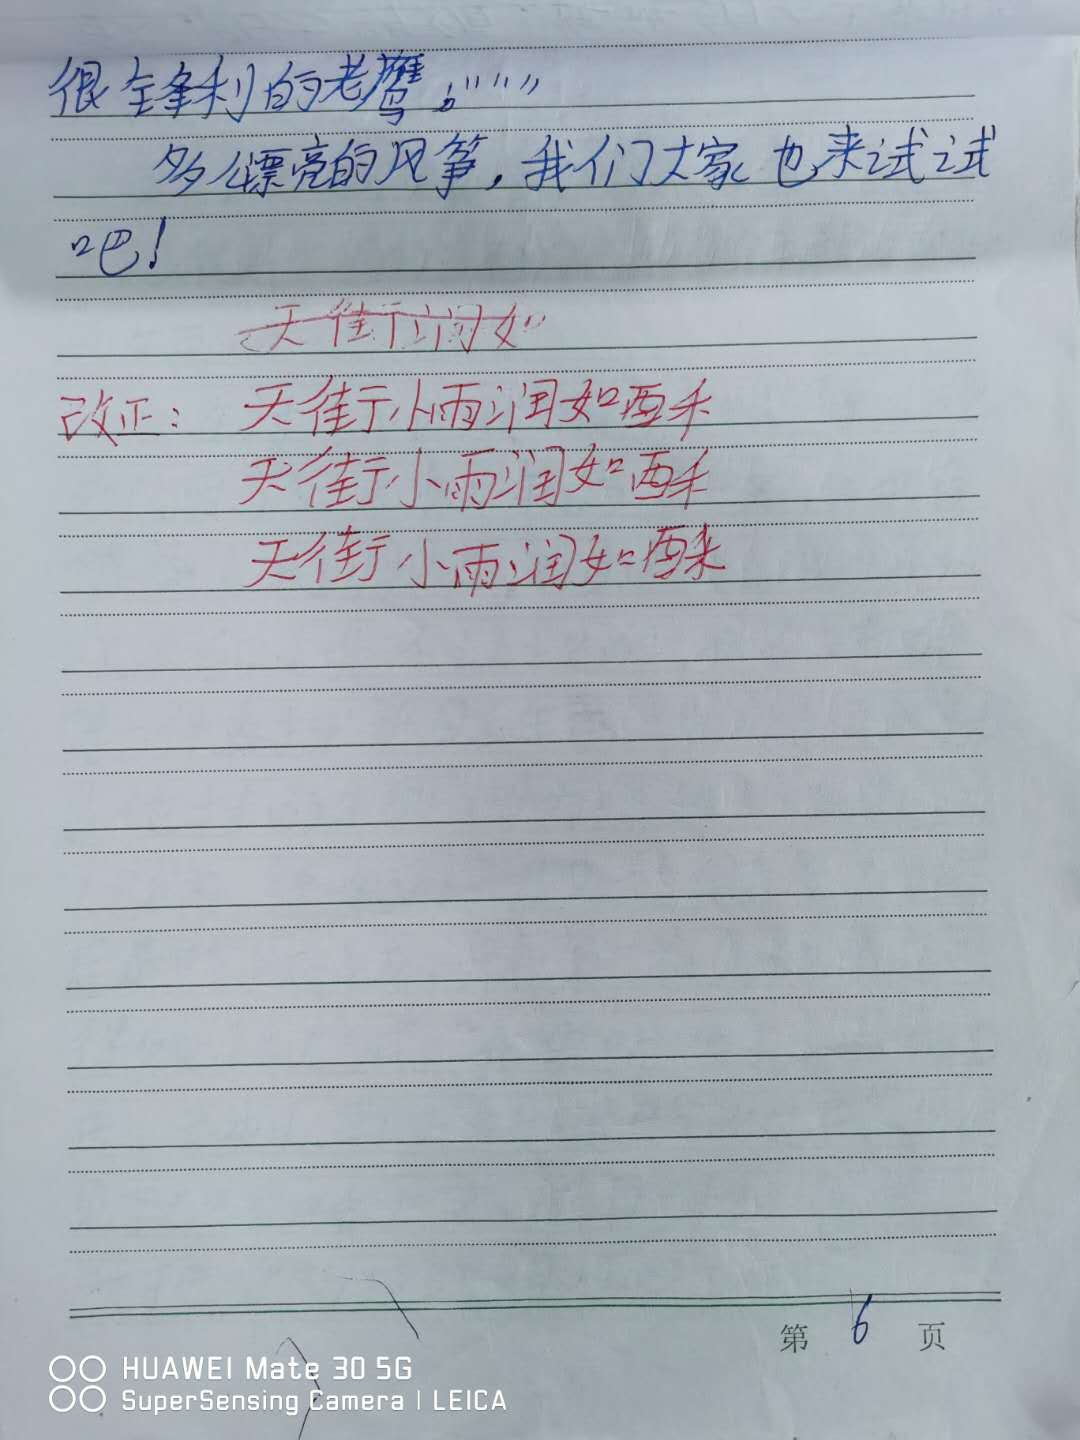 很锋利的老鹰。""""
多么漂亮的风筝，我们大家也来试试
吧！
天街 润如
改正：天街小雨润如酥
天街小雨润如酥
天街小雨润如酥
第 6 页
HUAWEI Mate 30 5G
SuperSensing Camera | LEICA